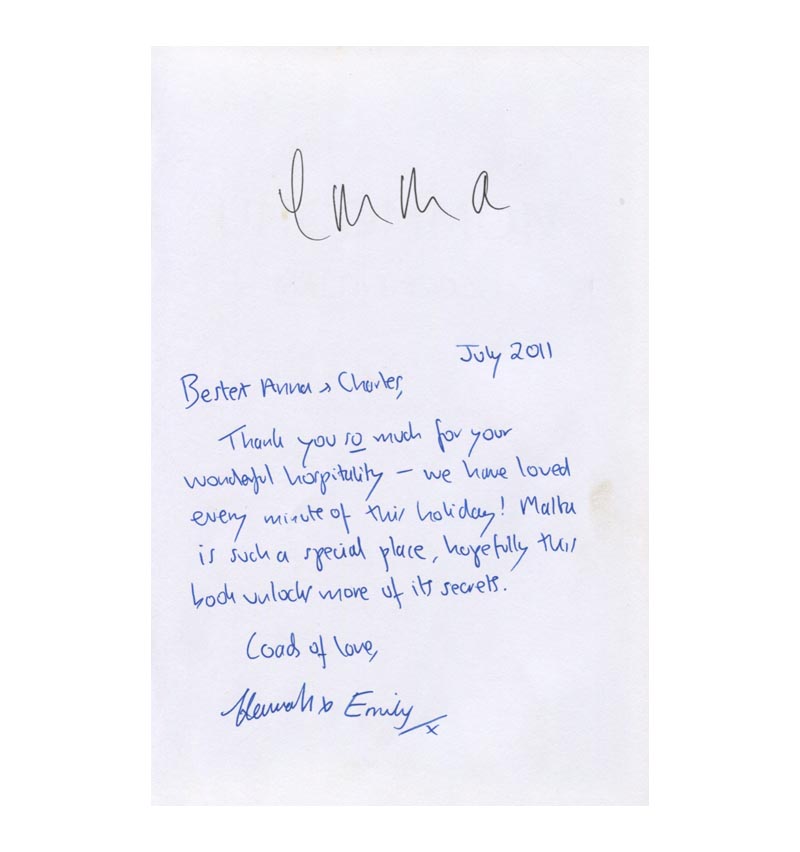 Emma
July 2011
Bestest Anna & Charles,
Thank you so much for your
wonderful hospitality – we have loved
every minute of this holiday! Malta
is such a special place, hopefully this
book unlocks more of its secrets.
Loads of love,
Hannah & Emily x